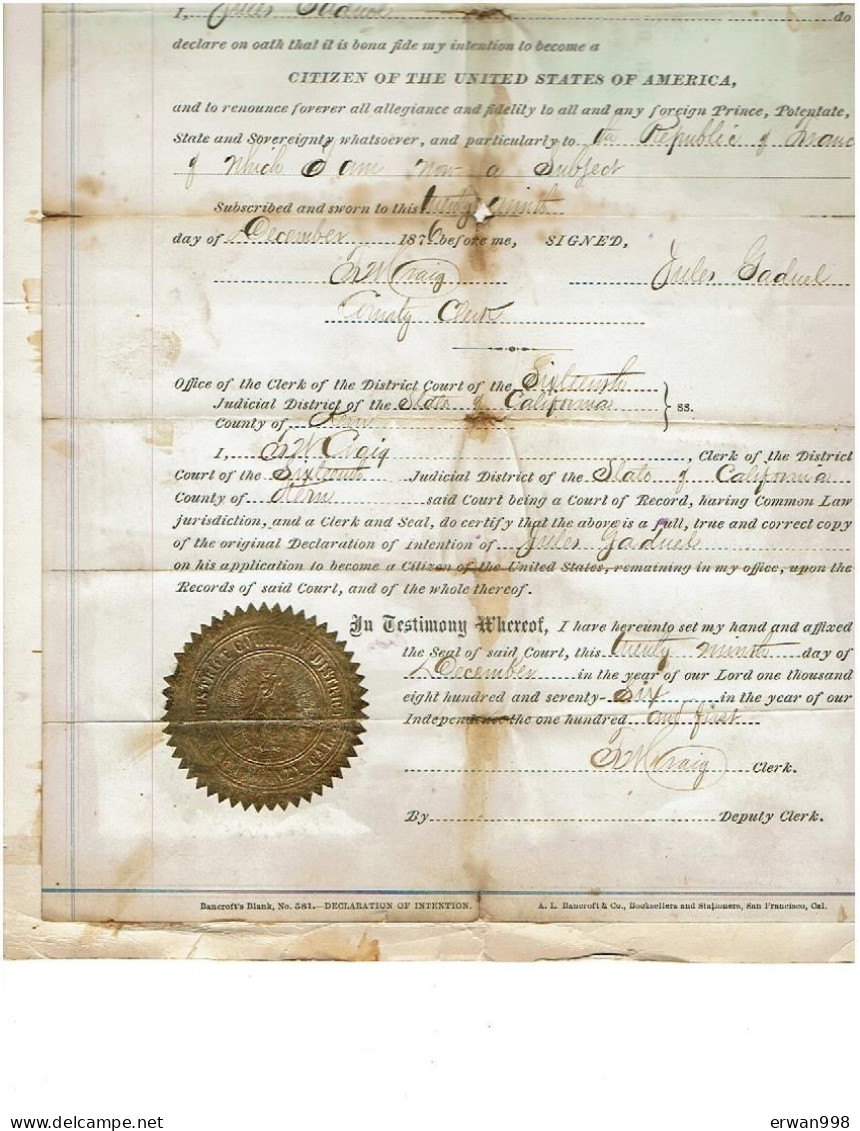 I, Jules Gaduel do
declare on oath that it is bona fide my intention to become a
CITIZEN OF THE UNITED STATES OF AMERICA,
and to renounce forever all allegiance and fidelity to all and any foreign Prince, Potentate,
State and Sovereignty whatsoever, and particularly to the Republic of Franc
of which I am now a Subject
Subscribed and sworn to this twenty ninth
day of December 1876 before me, SIGNED,
F W Craig Jules Gaduel
County Clerk
Office of the Clerk of the District Court of the Sixteenth
Judicial District of the State of California
County of Kern } ss.
I, F W Craig, Clerk of the District
Court of the Sixteenth Judicial District of the State of California
County of Kern said Court being a Court of Record, having Common Law
jurisdiction, and a Clerk and Seal, do certify that the above is a full, true and correct copy
of the original Declaration of Intention of Jules Gaduel
on his application to become a Citizen of the United States, remaining in my office, upon the
Records of said Court, and of the whole thereof.
In Testimony Whereof, I have hereunto set my hand and affixed
the Seal of said Court, this twenty ninth day of
December in the year of our Lord one thousand
eight hundred and seventy-six in the year of our
Independence the one hundred and first
F W Craig Clerk.
By Deputy Clerk.
DISTRICT COURT DISTRICT
CAL.
Bancroft's Blank, No. 581.—DECLARATION OF INTENTION. A. L. Bancroft & Co., Booksellers and Stationers, San Francisco, Cal.
erwan998